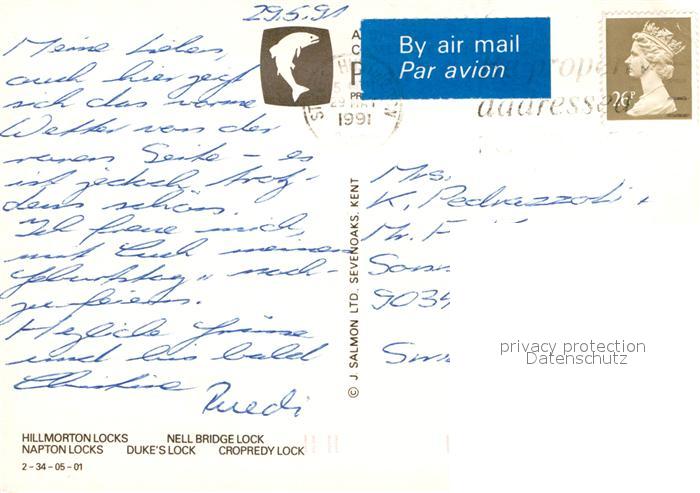 29.5.91
Meine Lieben,
auch hier zeigt
sich das
Wetter von der
Seite – es
ist jedoch trotz-
dem schön.
Ich freue mich,
mit Euch meinen
Geburtstag " nach-
zufeiern.
Herzliche Grüsse
und bis bald
Christine
Ruedi
By air mail
Par avion
1991
proper
addressed
26P
Mrs.
K. Pedrazzoli
Mr. F
9034
© J. SALMON LTD. SEVENOAKS. KENT
privacy protection
Datenschutz
HILLMORTON LOCKS NELL BRIDGE LOCK
NAPTON LOCKS DUKE'S LOCK CROPREDY LOCK
2-34-05-01